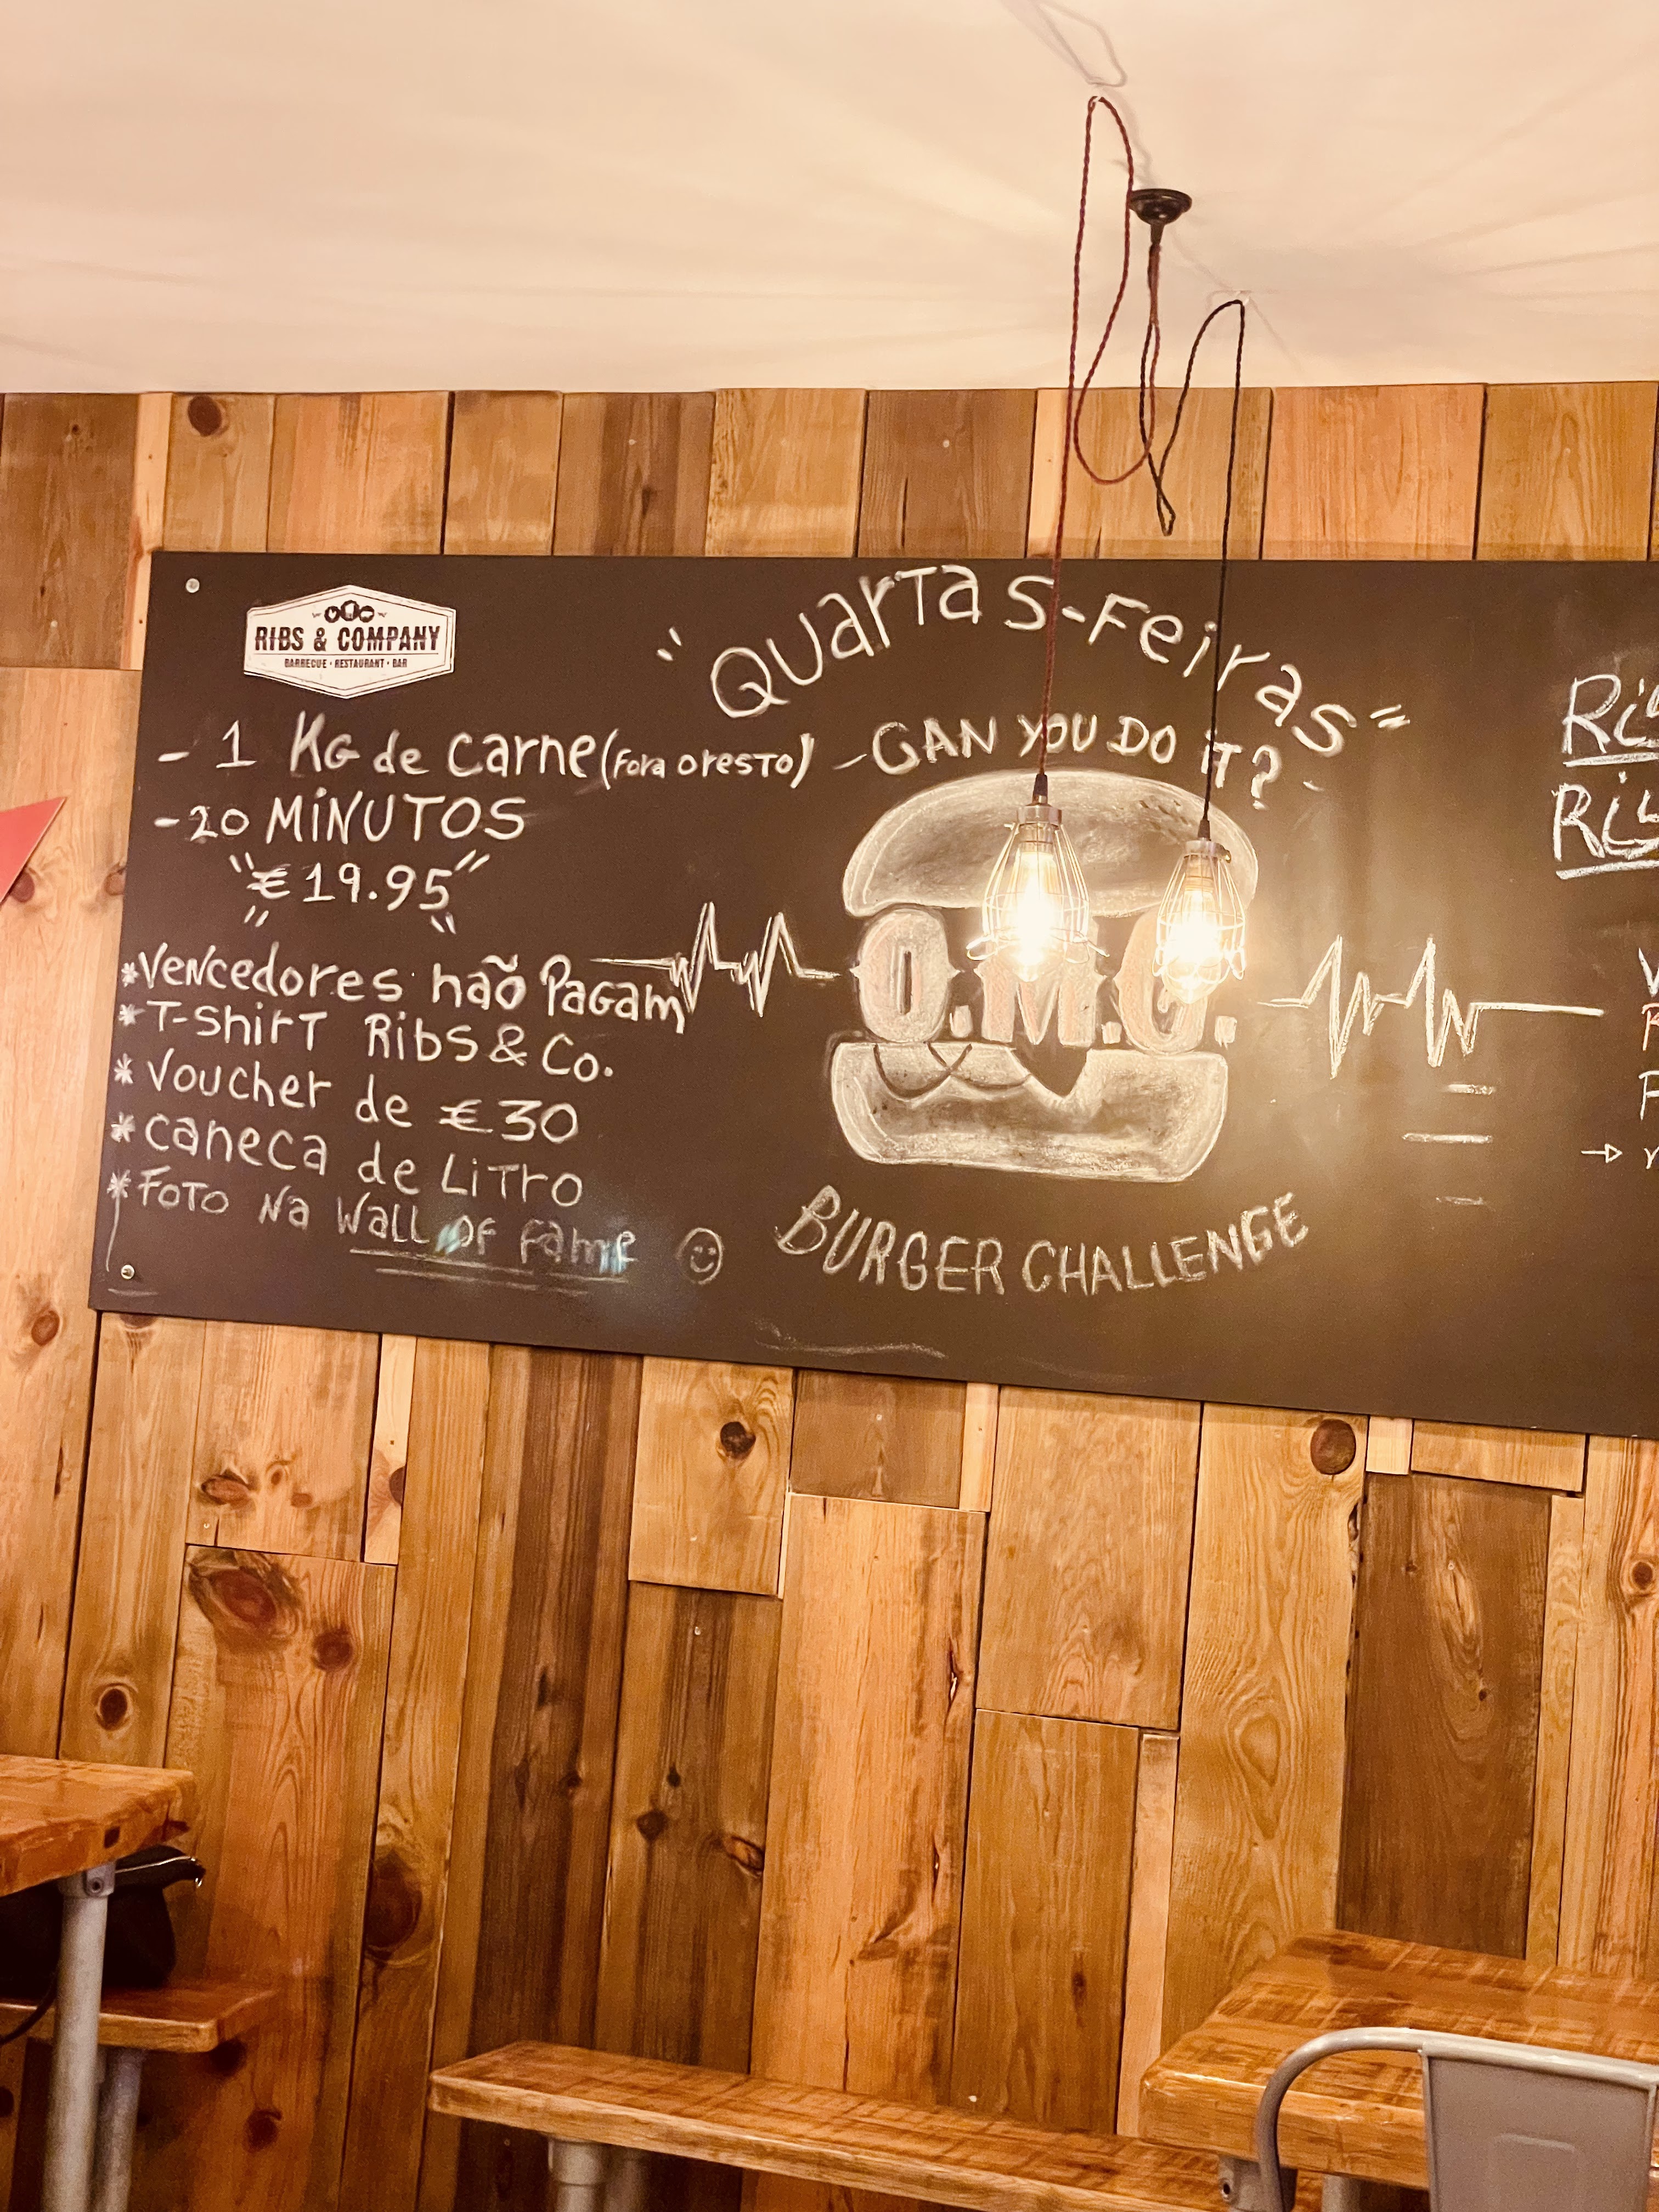 RIBS & COMPANY
BARBECUE • RESTAURANT • BAR
- 1 KG de carne (fora o resto)
- 20 MINUTOS
"€ 19.95"
* Vencedores não Pagam
* T-shirt Ribs & Co.
* Voucher de € 30
* caneca de Litro
* Foto na Wall of fame
"Quartas-Feiras"
- CAN YOU DO iT? -
O.M.G.
BURGER CHALLENGE